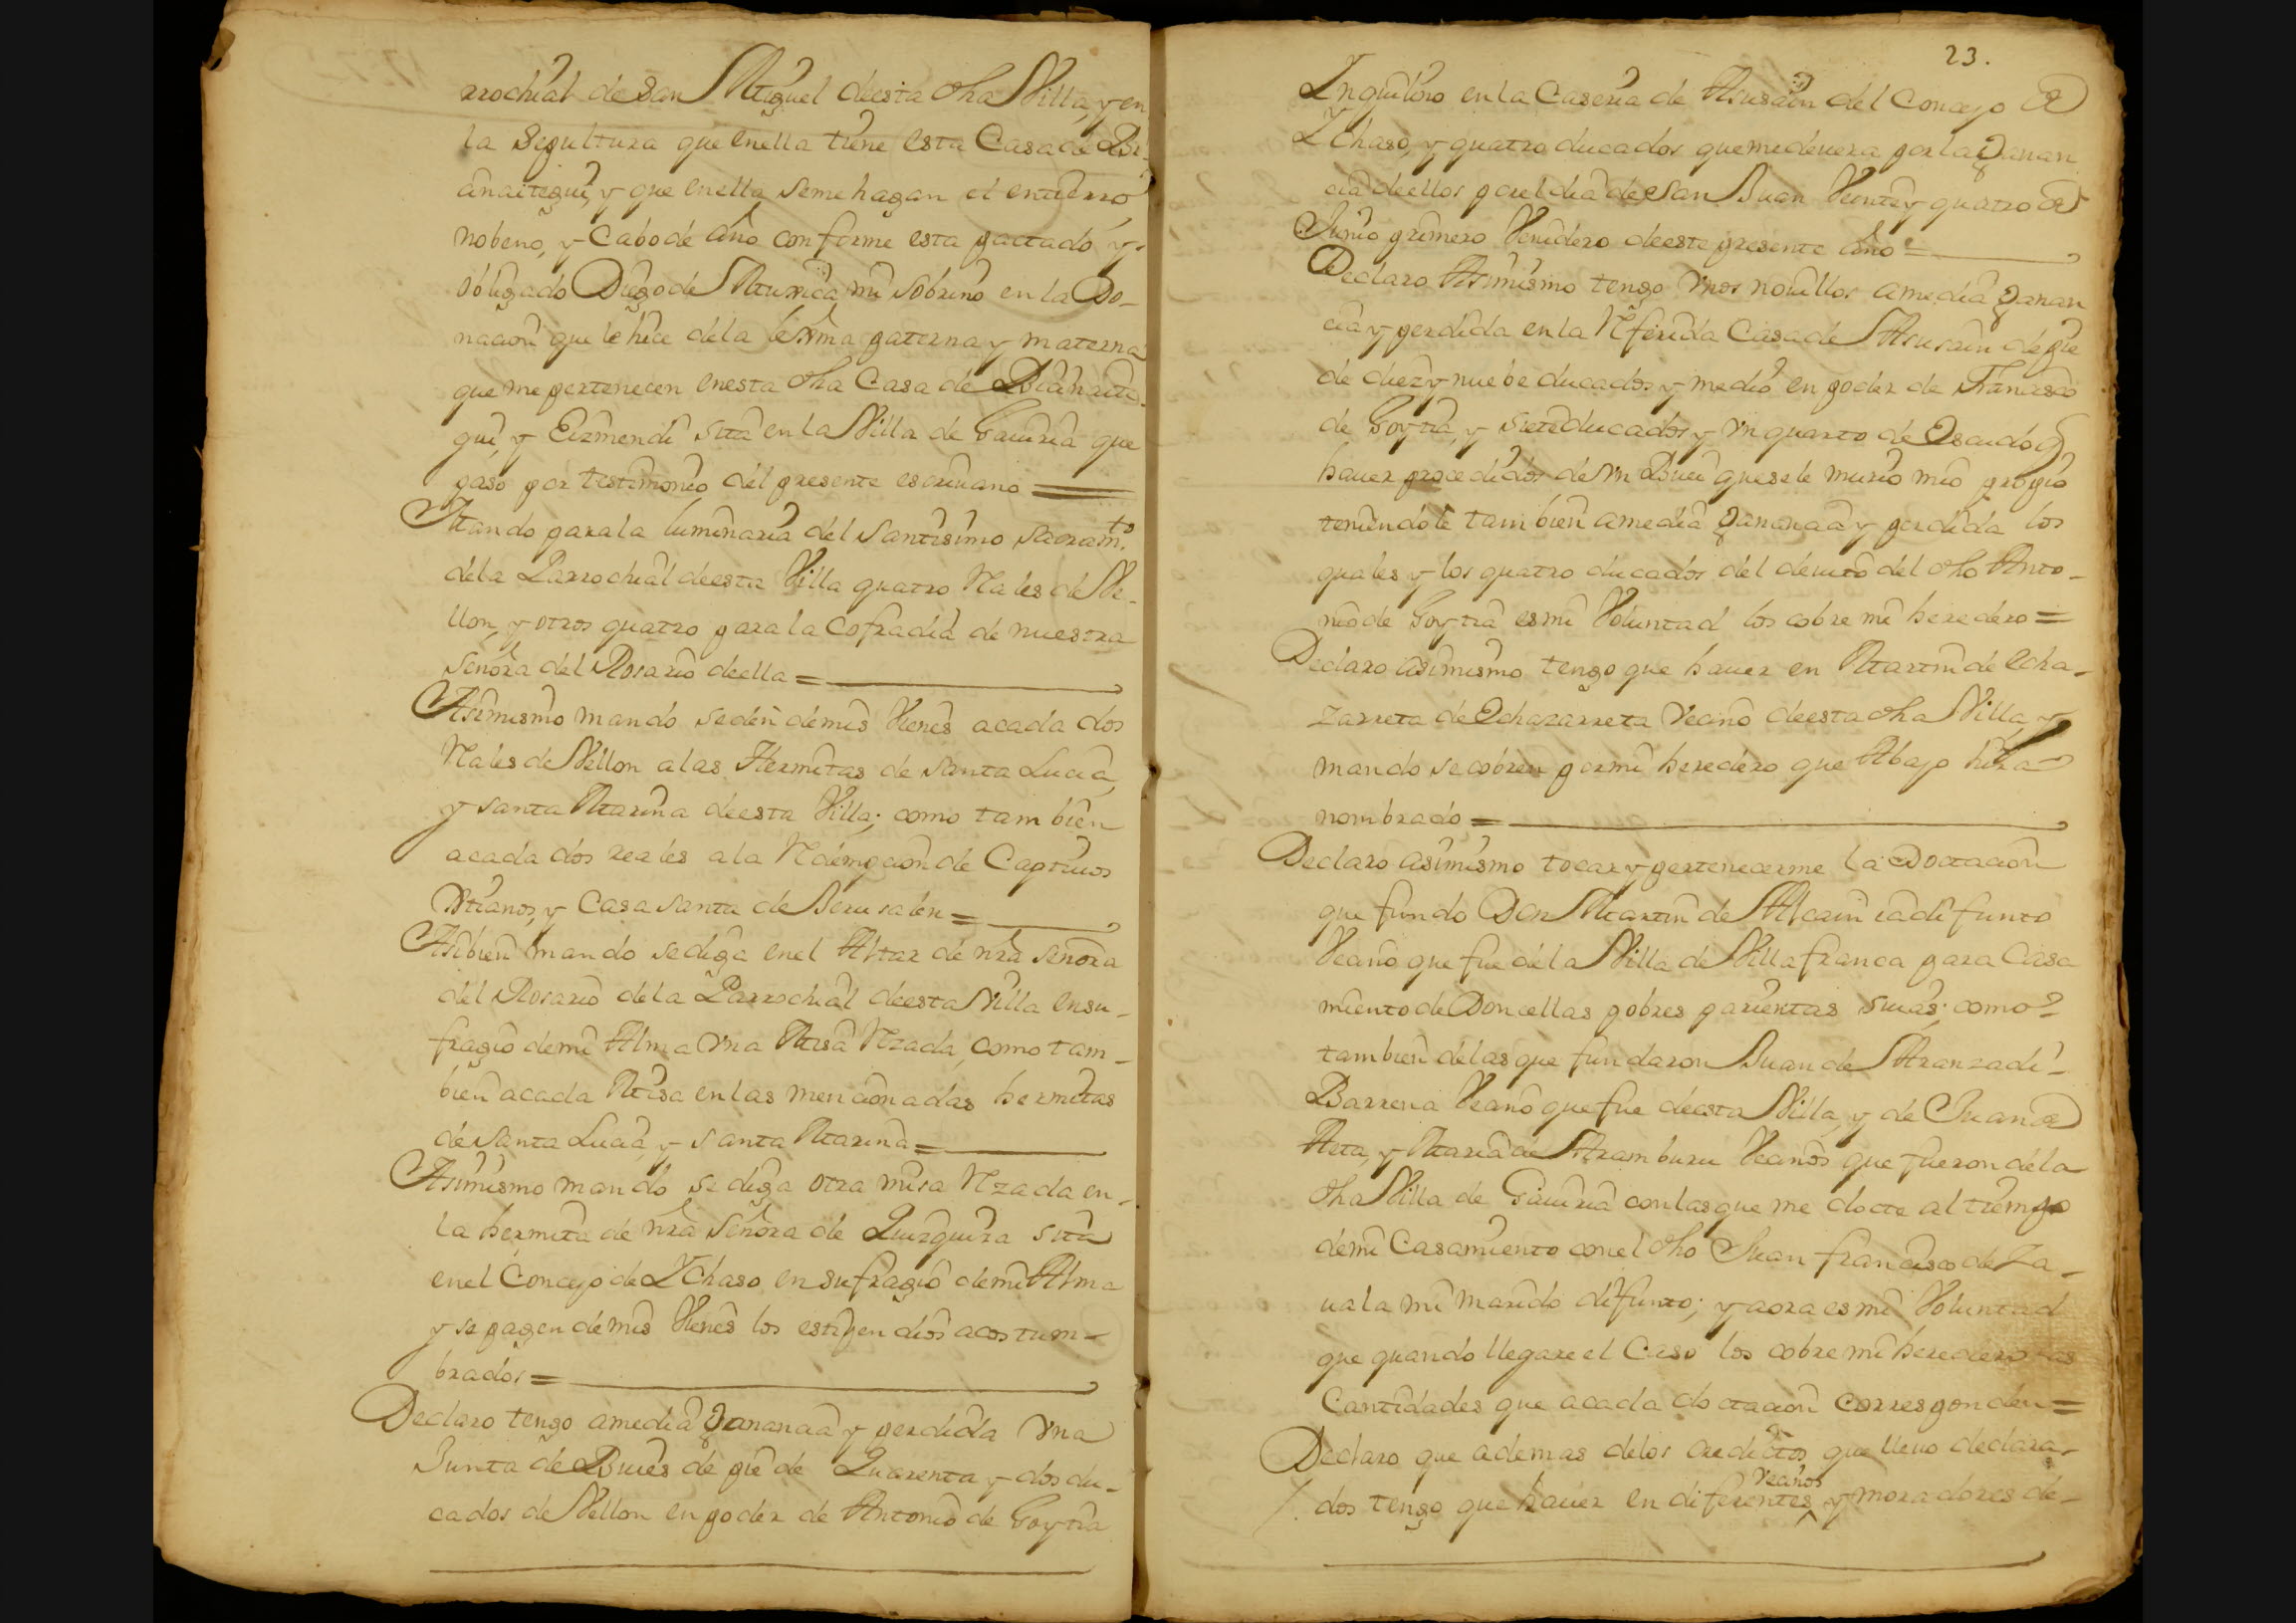 rrochial de San Miguel deesta dha Villa, y en
la Sepultura que enella tiene esta Casa de Bi-
añaitegui, y que enella semehagan el entierro
nobeno, y Cabo de año conforme esta pactado y
obligado Diego de Munica mi sobrino en la Do-
nacion que le hice dela lexma paterna y materna
que me pertenecen enesta dha Casa de Biañaite
gui, y Eizmendi sita en la Villa de Gaviria que
paso por testimonio del presente escrivano =
Mando para la luminaria del Santisimo Sacramto.
dela Parrochial deesta Villa quatro Rales de Ve-
llon, y otros quatro para la Cofradia de nuestra
Señora del Rosario deella =
Asimismo mando seden demis Vienes acada dos
Rales de Vellon alas Hermitas de Santa Lucia,
y Santa Marina deesta Villa; como tambien
acada dos reales ala Redempcion de Captivos
Xptianos, y Casa Santa de Jerusalen =
Asibien mando sediga enel Altar de nra Señora
del Rosario dela Parrochial deesta Villa ensu-
fragio demi Alma Vna Misa Rezada, como tam-
bien acada Misa en las mencionadas hermitas
de Santa Lucia, y Santa Marina =
Asimismo mando se diga otra misa Rezada en-
la hermita de nra Señora de Quizquiza sita
enel Concejo de Ychaso en sufragio demi Alma
y se pagen demis Vienes los estipendios acostum-
brados =
Declaro tengo amedia Ganancia y perdida Vna
Junta de Bueies de pie de Quarenta y dos du-
cados de Vellon en poder de Antonio de Goytia
23.
Ynquilino en la Caseria de Asusain del Concejo de
Ychaso, y quatro ducados que medevera por la Ganan
cia deellos por el dia de San Juan Veinte y quatro de
Junio primero Venidero deeste presente año =
Declaro Asimismo tengo Vnos novillos amedia Ganan
cia y perdida en la Referida Casa de Asusain de pie
de diez y nuebe ducados y medio en poder de Francisco
de Goytia, y siete ducados y Vn quarto de Escudo
haver procedidos de Vn Buei quesele murio mio propio
teniendole tambien amedia Ganancia y perdida los
quales y los quatro ducados del devito del dho Anto-
nio de Goytia es mi Voluntad los cobre mi heredero =
Declaro asimismo tengo que haver en Martin de Echa-
zarreta de Echazarreta Vecino deesta dha Villa, y
mando se cobren por mi heredero que Abajo hira
nombrado =
Declaro asimismo tocar y pertenecerme la Doctacion
que fundo Don Martin de Alcain ia difunto
Vecino que fue dela Villa de Villafranca para Casa
miento de Doncellas pobres parientas suias; como
tambien delas que fundaron Juan de Aranzadi
Barrena Vecino que fue deesta Villa, y de Juan de
Aeta, y Maria de Aramburu Vecinos que fueron dela
dha Villa de Gaviria con las que me docte al tiempo
demi Casamiento conel dho Juan francisco de Za-
vala mi marido difunto; y aora es mi Voluntad
que quando llegare el Caso los cobre mi heredero las
Cantidades que acada doctacion corresponden =
Declaro que ademas delos creditos que llevo declara-
dos tengo que haver en diferentes Vecinos y moradores de-